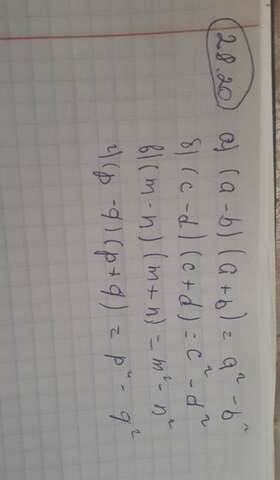 28.20
а) (a-b)(a+b)=a²-b²
б) (c-d)(c+d)=c²-d²
в) (m-n)(m+n)=m²-n²
г) (p-q)(p+q)=p²-q²